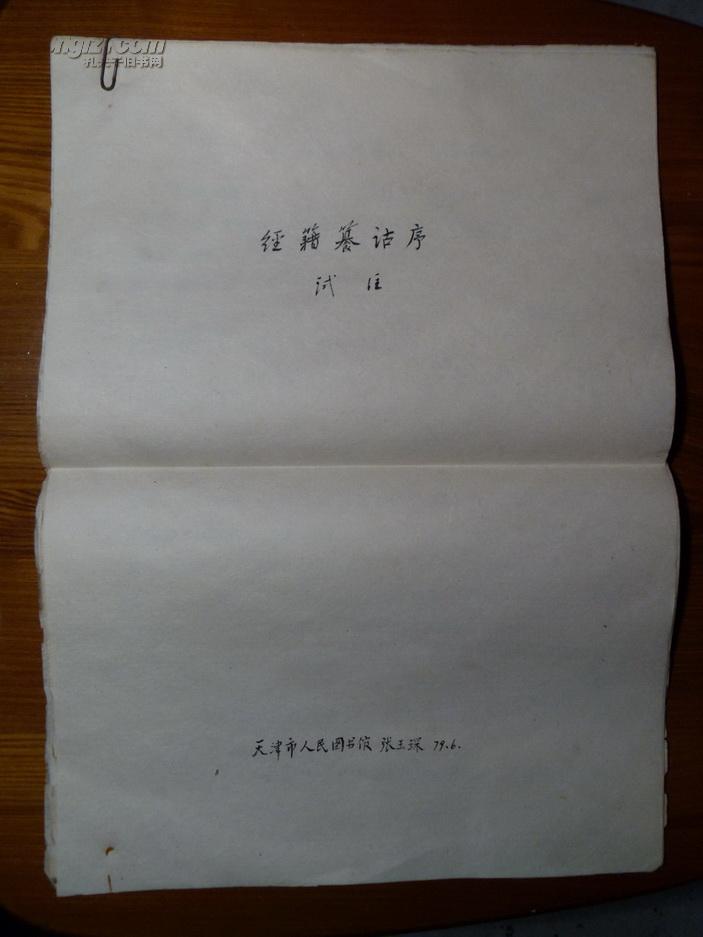 ngfz.com
孔夫子旧书网
经籍纂诂序
试注
天津市人民图书馆 张玉琛 79.6.